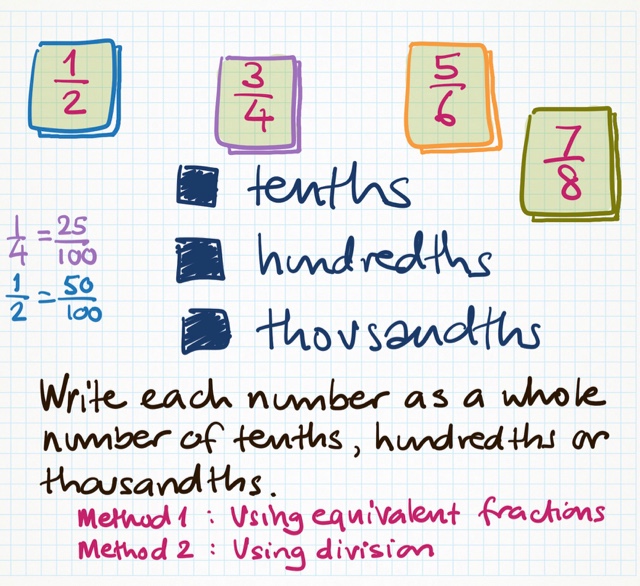 1/2
3/4
5/6
7/8
tenths
hundredths
thousandths
1/4 = 25/100
1/2 = 50/100
Write each number as a whole
number of tenths, hundredths or
thousandths.
Method 1 : Using equivalent fractions
Method 2 : Using division